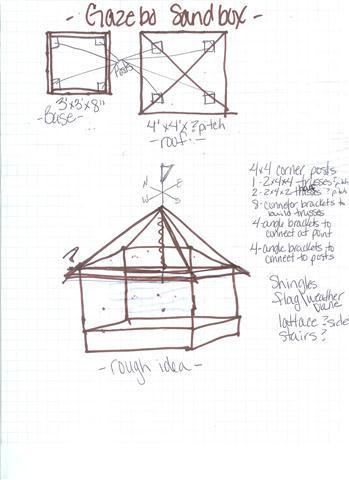 - Gazebo Sandbox -
Posts
3'x3'x8"
-Base-
4'x4'x ? pitch
-roof-
N
E
W
S
?
4x4 corner posts
1-2x4x4 trusses? pitch
2-2x4x2 trusses? pitch
8-connector brackets to
build trusses
4-angle brackets to
connect at point
4-angle brackets to
connect to posts
Shingles
flag/weather
vane
lattace ? side
stairs?
-rough idea-